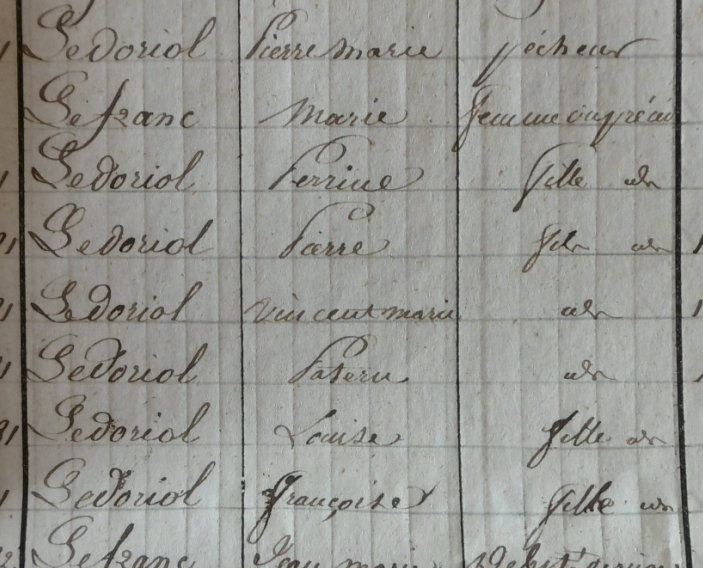 Ledoriol Pierre marie pêcheur
Lefranc Marie femme
Ledoriol Perrine fille idm
Ledoriol Pierre fils idm
Ledoriol Vincent marie idm
Ledoriol Patern idm
Ledoriol Louise fille idm
Ledoriol françoise fille idm
Lefranc Jean marie